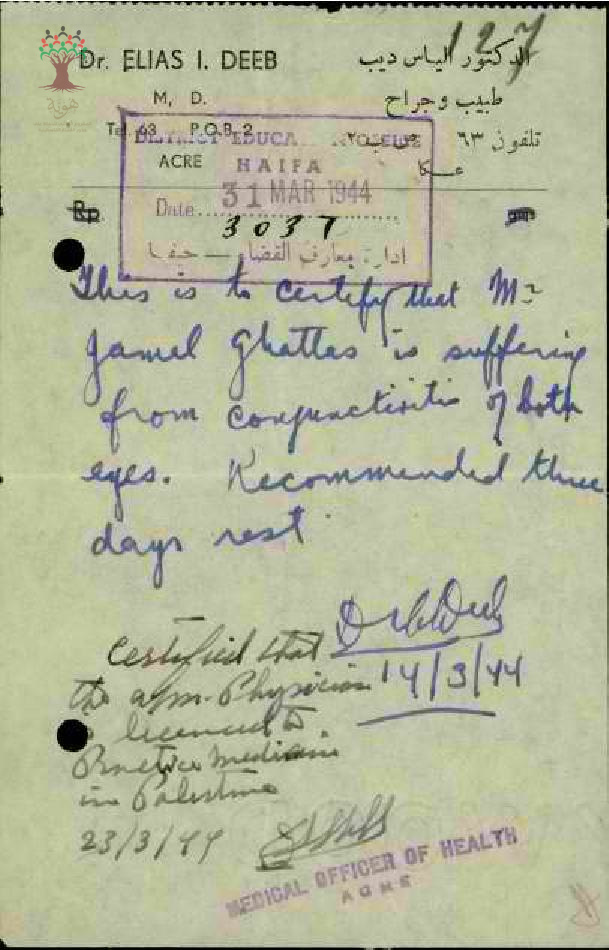 127
Dr. ELIAS I. DEEB
الدكتور الياس ديب
M, D.
طبيب وجراح
Tel. 63 P.O.B. 2
تلفون ٦٣ ص.ب ٢
ACRE
عكا
DISTRICT EDUCA
HAIFA
31 MAR 1944
Date
3037
ادارة معارف القضاء — حيفا
Rp
This is to certify that Mr
Jamel Ghattas is suffering
from conjunctivitis of both
eyes. Recommended three
days rest.
14/3/44
Certified that
the Physician
is licenced to
Practice Medicine
in Palestine
23/3/44
MEDICAL OFFICER OF HEALTH
ACRE
هوية